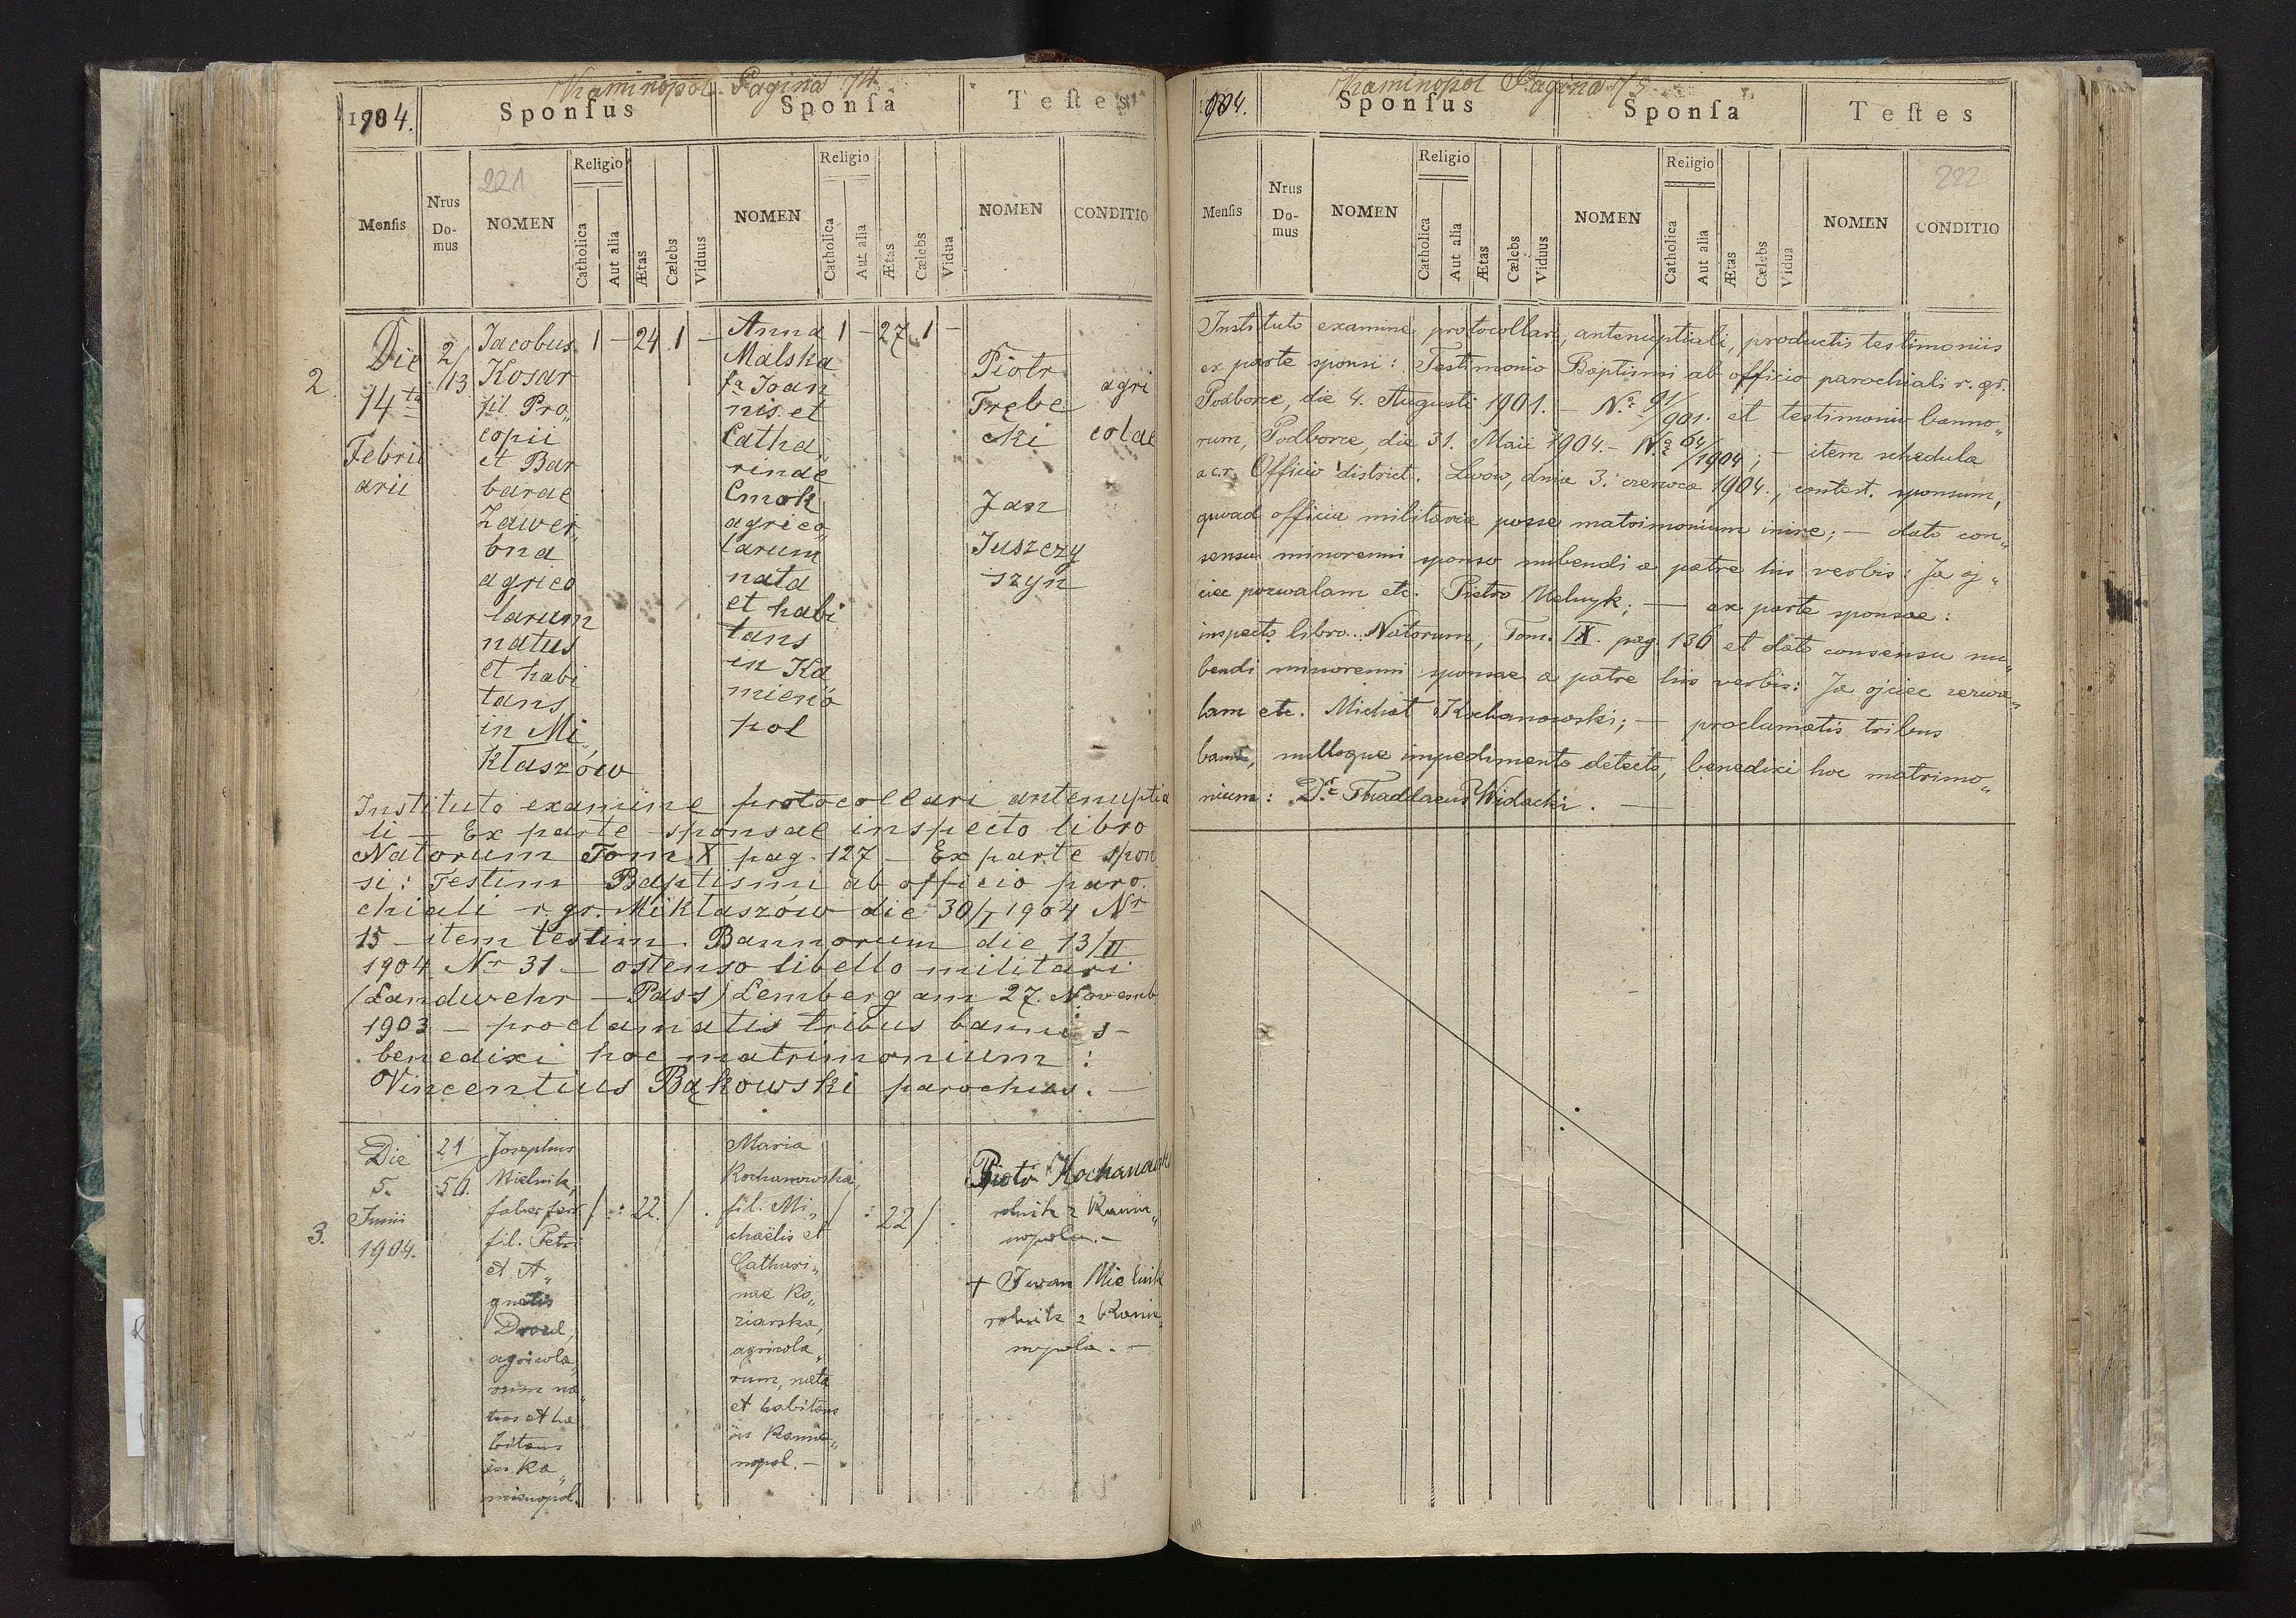 Kaminopol. Pagina 74.
1904.
Sponſus
Sponſa
Teſtes
Menſis
Nrus Do-mus
221
NOMEN
Religio
Catholica
Aut alia
Ætas
Cælebs
Viduus
NOMEN
Religio
Catholica
Aut alia
Ætas
Cælebs
Vidua
NOMEN
CONDITIO
2.
Die
14ta
Febru
arii
2/
13
Jacobus
Kosar
fil. Pro„
copii
et Bar
barae
Zawer„
bna
agrico
larum
natus
et habi
tans
in Mi„
kłaszów
1 - 24 1 -
Anna
Malska
fa Joan
nis et
Catha„
rinae
Cmok
agrico„
larum
nata
et habi
tans
in Ka
mienó
pol
1 - 27 1 -
Piotr
Trębe
cki
Jan
Juszczy
szyn
agri
colae
Instituto examine protocollari antenuptia
li — Ex parte sponsae inspecto libro
Natorum Tom. X pag. 127 — Ex parte spon
si: Testim Baptismi ab officio paro
chiali r. gr. Mikłaszów die 30/I 1904 Nr
15 — item testim. Bannorum die 13/II
1904 Nr 31 — ostenso libello militari
(Landwehr — Pass) Lemberg am 27. Novemb
1903 — proclamatis tribus bannis —
benedixi hoc matrimonium:
Vincentius Bąkowski parochus. —
3.
Die
5.
Junii
1904.
21
50.
Josephus
Mielnik,
faber ferr
fil. Petri
et A„
gnetis
Drozd,
agricola„
rum na„
tus et ha„
bitans
in Ka„
mienopol.
/ : 22. / .
Maria
Kochanowska,
fil. Mi„
chaëlis et
Cathari„
nae Ko„
ziarska,
agricola„
rum, nata
et habitans
in Kamie„
nopol. —
/ : 22 / .
Piotr Kochanowski
rolnik z Kamie„
nopola. —
+ Iwan Mielnik
rolnik z Kamie„
nopola. —
Kaminopol Pagina 75
1904.
Sponſus
Sponſa
Teſtes
Menſis
Nrus Do-mus
NOMEN
Religio
Catholica
Aut alia
Ætas
Cælebs
Viduus
NOMEN
Religio
Catholica
Aut alia
Ætas
Cælebs
Vidua
NOMEN
222
CONDITIO
Instituto examine protocollari, antenuptiali, productis testimoniis
ex parte sponsi: Testimonio Baptismi ab officio parochiali r. gr.
Podborce, die 4. Augusti 1901. — No 91/901. et testimonio banno„
rum, Podborce, die 31. Maii 1904. — No 64/1904; — item schedula
a c. r. Officio district. Lwów, dnia 3. czerwca 1904., contest. sponsum,
quoad officia militaria posse matrimonium inire; — dato con„
sensu minorenni sponso nubendi a patre his verbis: Ja oj„
ciec pozwalam etc. Pietro Melnyk; — ex parte sponsae:
inspecto libro Natorum, Tom. IX. pag. 136 et dato consensu nu„
bendi minorenni sponsae a patre his verbis: Ja ojciec zezwa„
lam etc. Michał Kochanowski; — proclamatis tribus
bannis, nulloque impedimento detecto, benedixi hoc matrimo„
nium: Dr. Thadlaeus Widacki. —
114